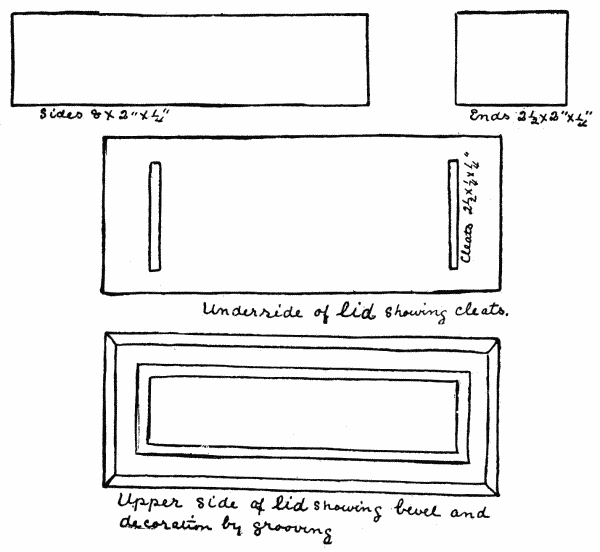 Sides 8 X 2" X ¼"
Ends 2½ X 2" X ¼"
Cleats 2½ X ¼ X ¼"
Underside of lid showing cleats.
Upper side of lid showing bevel and
decoration by grooving